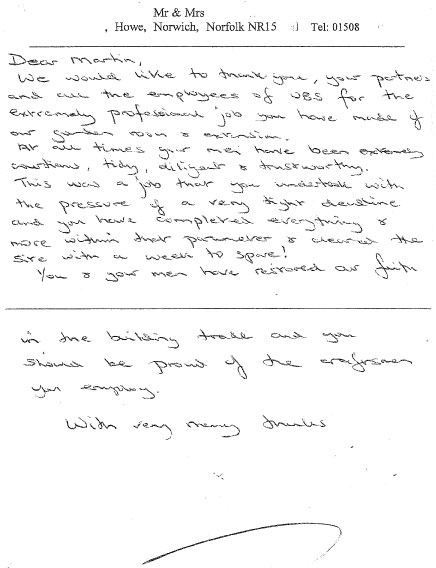 Mr & Mrs
, Howe, Norwich, Norfolk NR15 Tel: 01508
Dear Martin,
We would like to thank you, your partners
and all the employees of UBS for the
extremely professional job you have made of
our garden room & extension.
At all times your men have been extremely
courteous, tidy, diligent & trustworthy.
This was a job that you undertook with
the pressure of a very tight deadline
and you have completed everything &
more within that parameter & cleared the
site with a week to spare!
You & your men have restored our faith
in the building trade and you
should be proud of the craftsmen
you employ.
With very many thanks